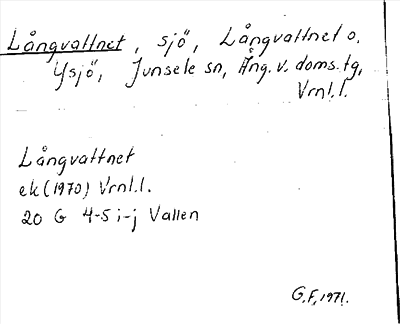 Långvattnet, sjö, Långvattnet o.
Ysjö, Junsele sn, Ång. v. doms. tg,
Vrnl. l.
Långvattnet
ek (1970) Vrnl. l.
20 G 4-5 i-j Vallen
G.F. 1971.